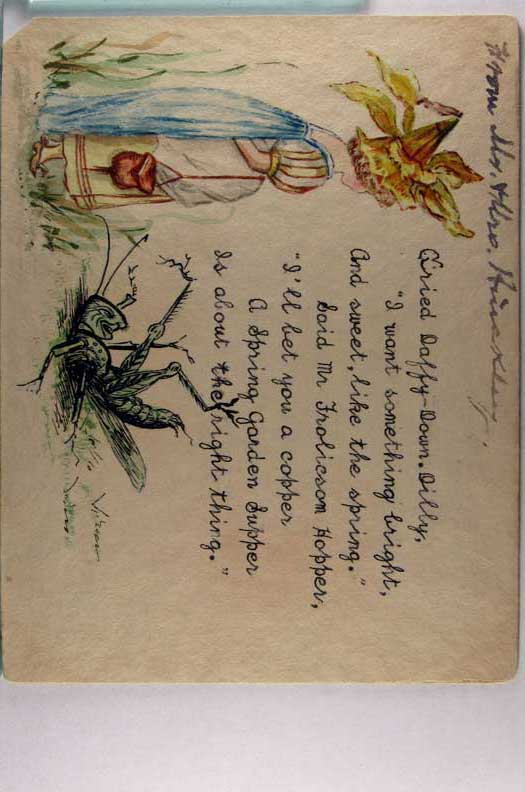 From Mr. & Mrs.
Cried Daffy-Down-Dilly,
"I want something bright,
And sweet, like the spring."
Said Mr Frolicsom Hopper,
"I'll bet you a copper
A Spring Garden Supper
Is about the right thing."